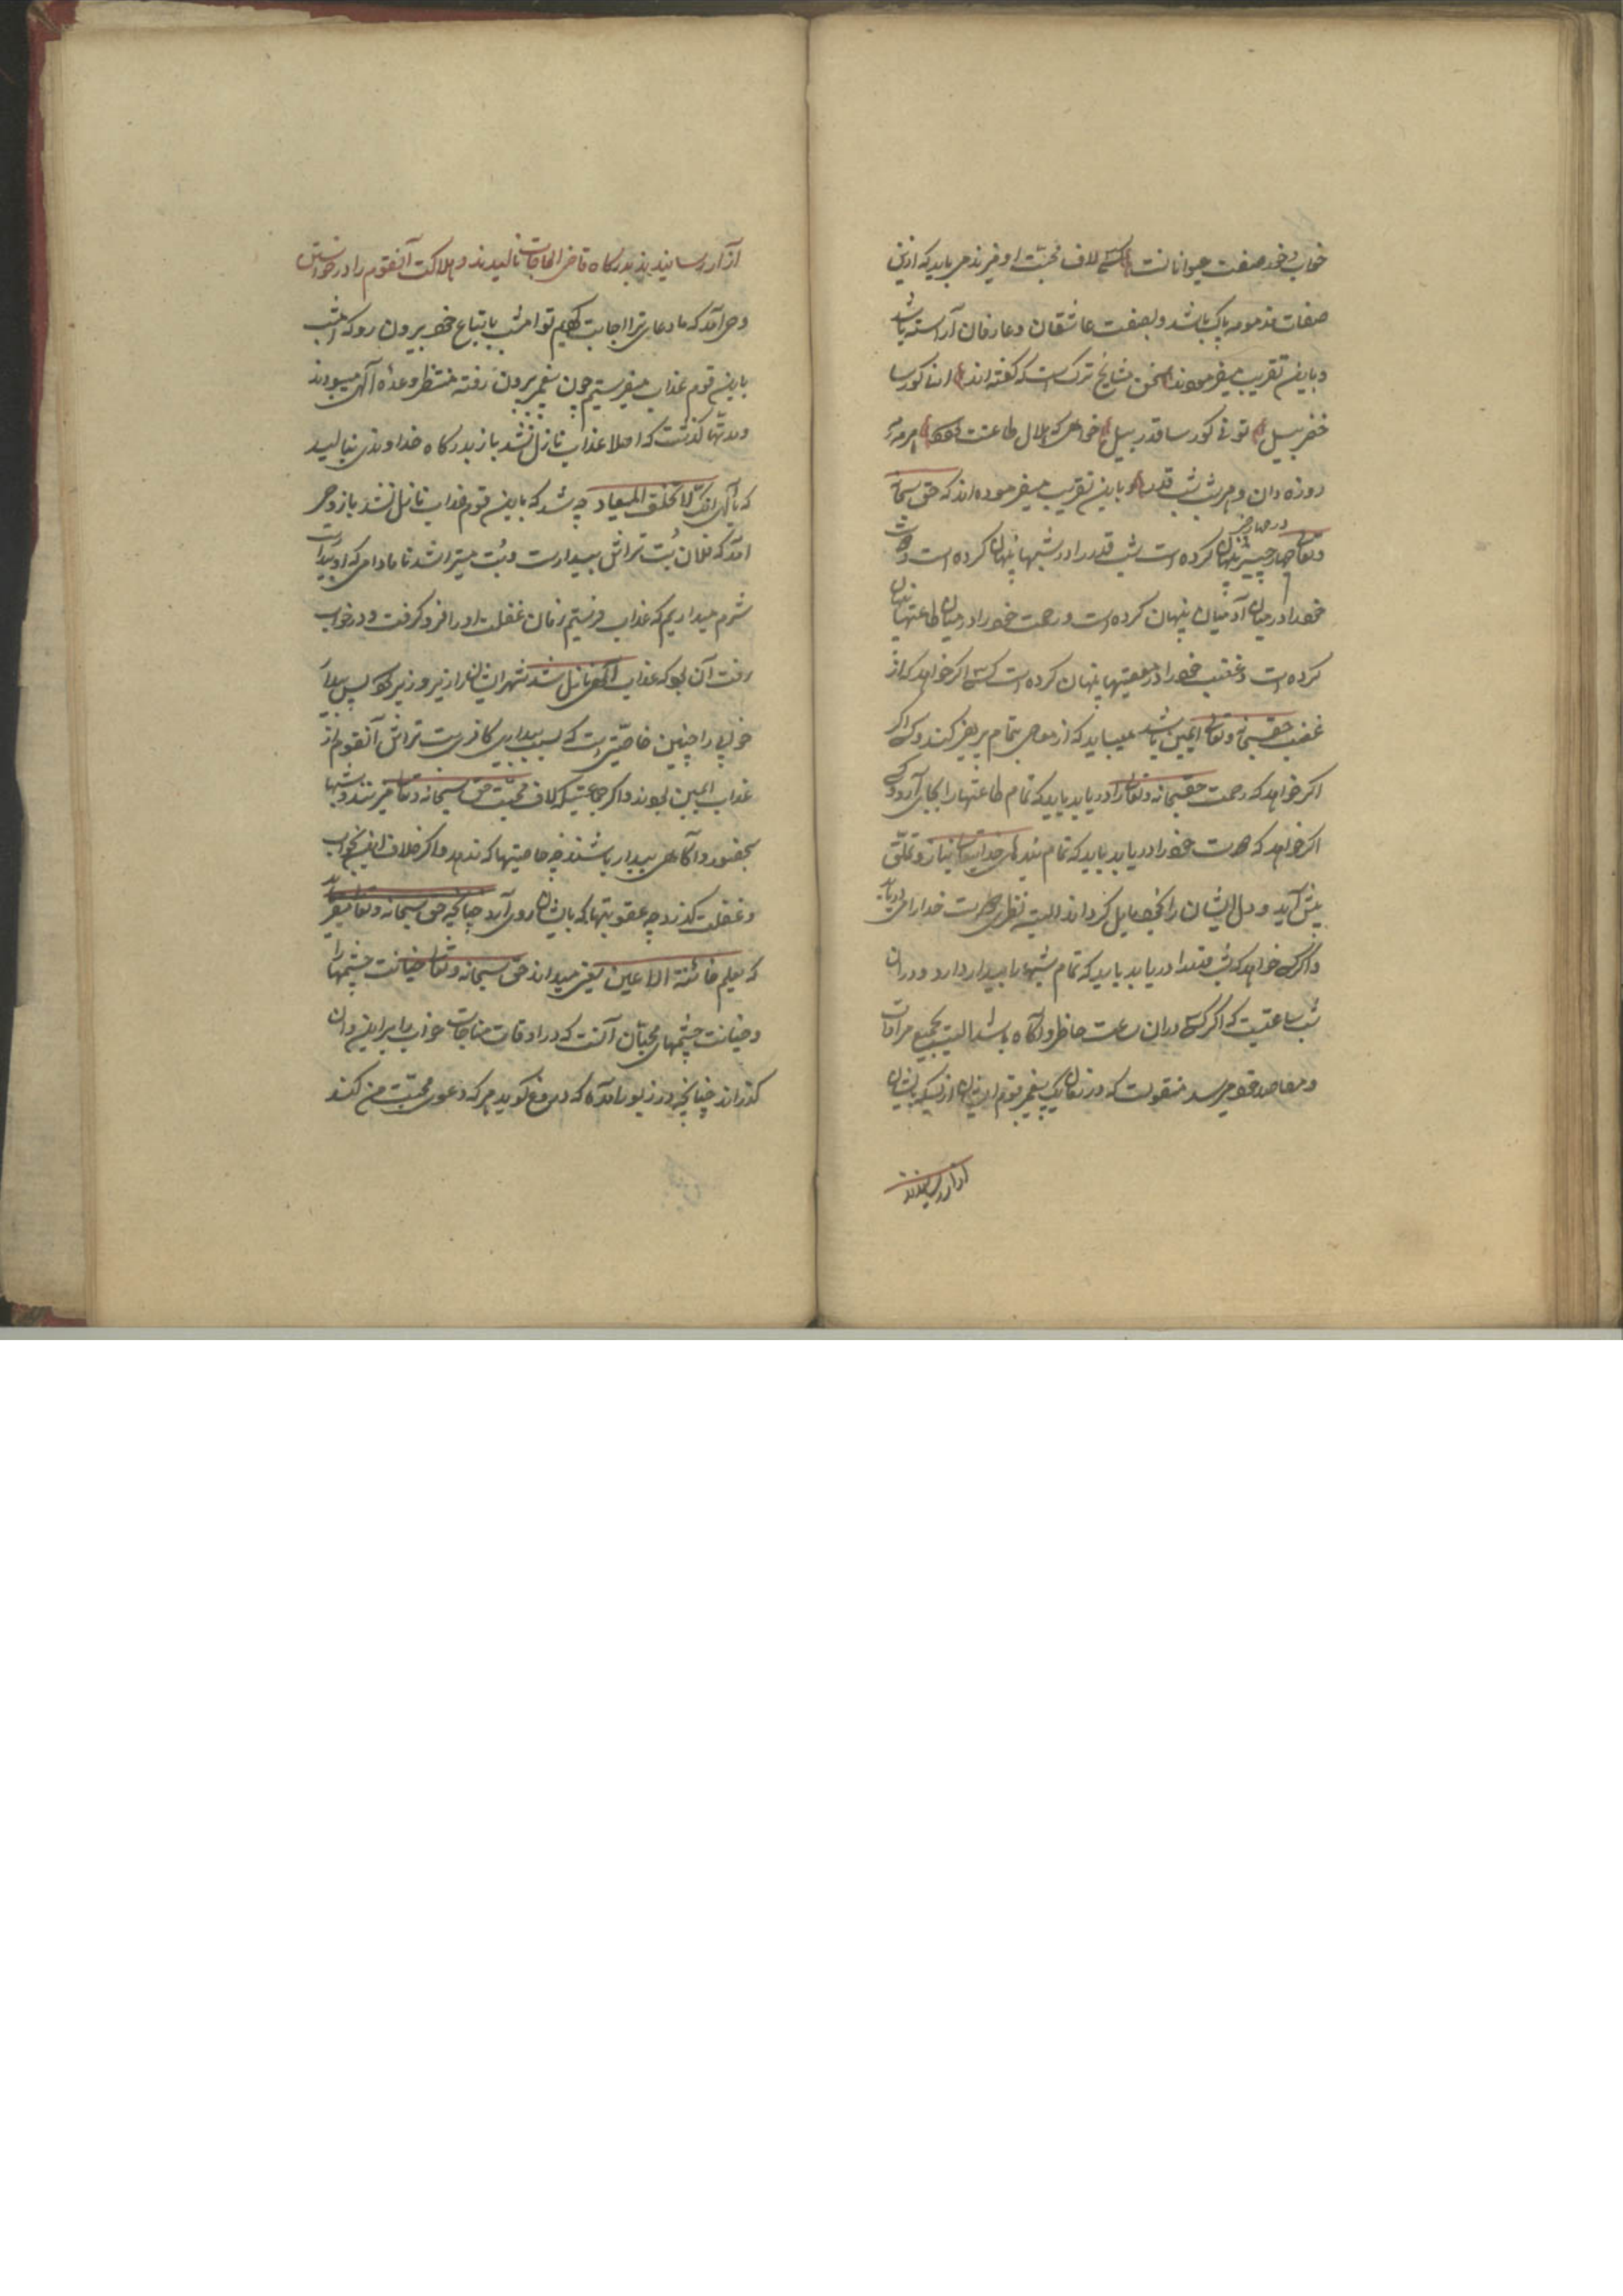 خواب و خور صفت حیوانانست کسیکه لاف محبت او میزند می باید که ازین
صفات مذمومه پاک باشد و بصفت عاشقان و عارفان آراسته باشد
و باین تقریب میفرمودند سخن مشایخ ترک است که گفته اند اناکورسا
خضر بیل تونی کورسا قدر بیل خواهی که
روزه دان و هر شب شب قدر و باین تقریب میفرموده اند که حق سبحانه
و تعالی چهار چیز در چهار چیز پنهان کرده است شب قدر را در شبها پنهان کرده است و دوست
خود را در میان آدمیان پنهان کرده است و رحمت خود را در میان طاعتها پنهان
کرده است و غضب خود را در معصیتها پنهان کرده است کسی اگر خواهد که از
غضب حقسبحانه و تعالی ایمن باشد میباید که از معاصی بتمام پرهیز کند و کسی اگر
اگر خواهد که رحمت حقسبحانه و تعالی را دریابد باید که تمام طاعتها را بجای آرد و کسی
اگر خواهد که دوست خود را دریابد باید که تمام بندهای خدایتعالی نیاز و تملق
پیش آید و دل ایشان را بخود مایل گرداند البته نظر دوست خدا را می دریابد
و اگر کسی خواهد که شب قدر را دریابد باید که تمام شبها را بیدار دارد و در ان
شب ساعتیست که اگر کسی دران ساعت حاظر و آگاه باشد البته بجمیع مرادات
و مقاصد خود میرسد منقولست که در زمان یک پیغمبر قوم ایشان از بسکه بایشان
آزار رسانیدند
آزار رسانیدند بدرگاه قاضی الحاجات نالیدند و هلاکت آنقوم را درخواستن
وحی آمد که ما دعای ترا اجابت کردیم تو امشب با تباع خود بیرون رو که امشب
باین قوم عذاب میفرستیم چون پیغمبر بیرون رفته منتظر وعده الهی میبودند
و مدتها گذشت که اصلا عذاب نازل نشد باز بدرگاه خداوندی بنالید
که یا الهی انک لا تخلف المیعاد چه شد که باین قوم عذاب نازل نشد باز وحی
آمد که فلان بت تراش بیدارست و بت میتراشد تا مادامی که او بیدارست
شرم میداریم که عذاب فرستیم زمان غفلت او را فرو گرفت و در خواب
رفت آن بود که عذاب الهی نازل شد شهر ایشان را زیر و زبر کرد پس بیدار
خوابی را چنین خاصیتی است که بسبب بیداری کافری بت تراش آنقوم از
عذاب ایمن بودند و اگر جماعتیکه لاف محبت حق سبحانه و تعالی میزنند و شبها
بحضور و آگاهی بیدار باشند چه خاصیتها که ندهد و اگر خلاف این بخواب
و غفلت گذرد چه عقوبتها که بایشان رو آرد چنانچه حق سبحانه و تعالی میفرماید
که یعلم خائنة الاعین یعنی میداند حق سبحانه و تعالی خیانت چشمها را
و خیانت چشمهای محبان آنست که در اوقات مناجات خواب را بر این و ان
گذراند چنانچه در زبور آمده که دروغ گوید هر که دعوی محبت من کند